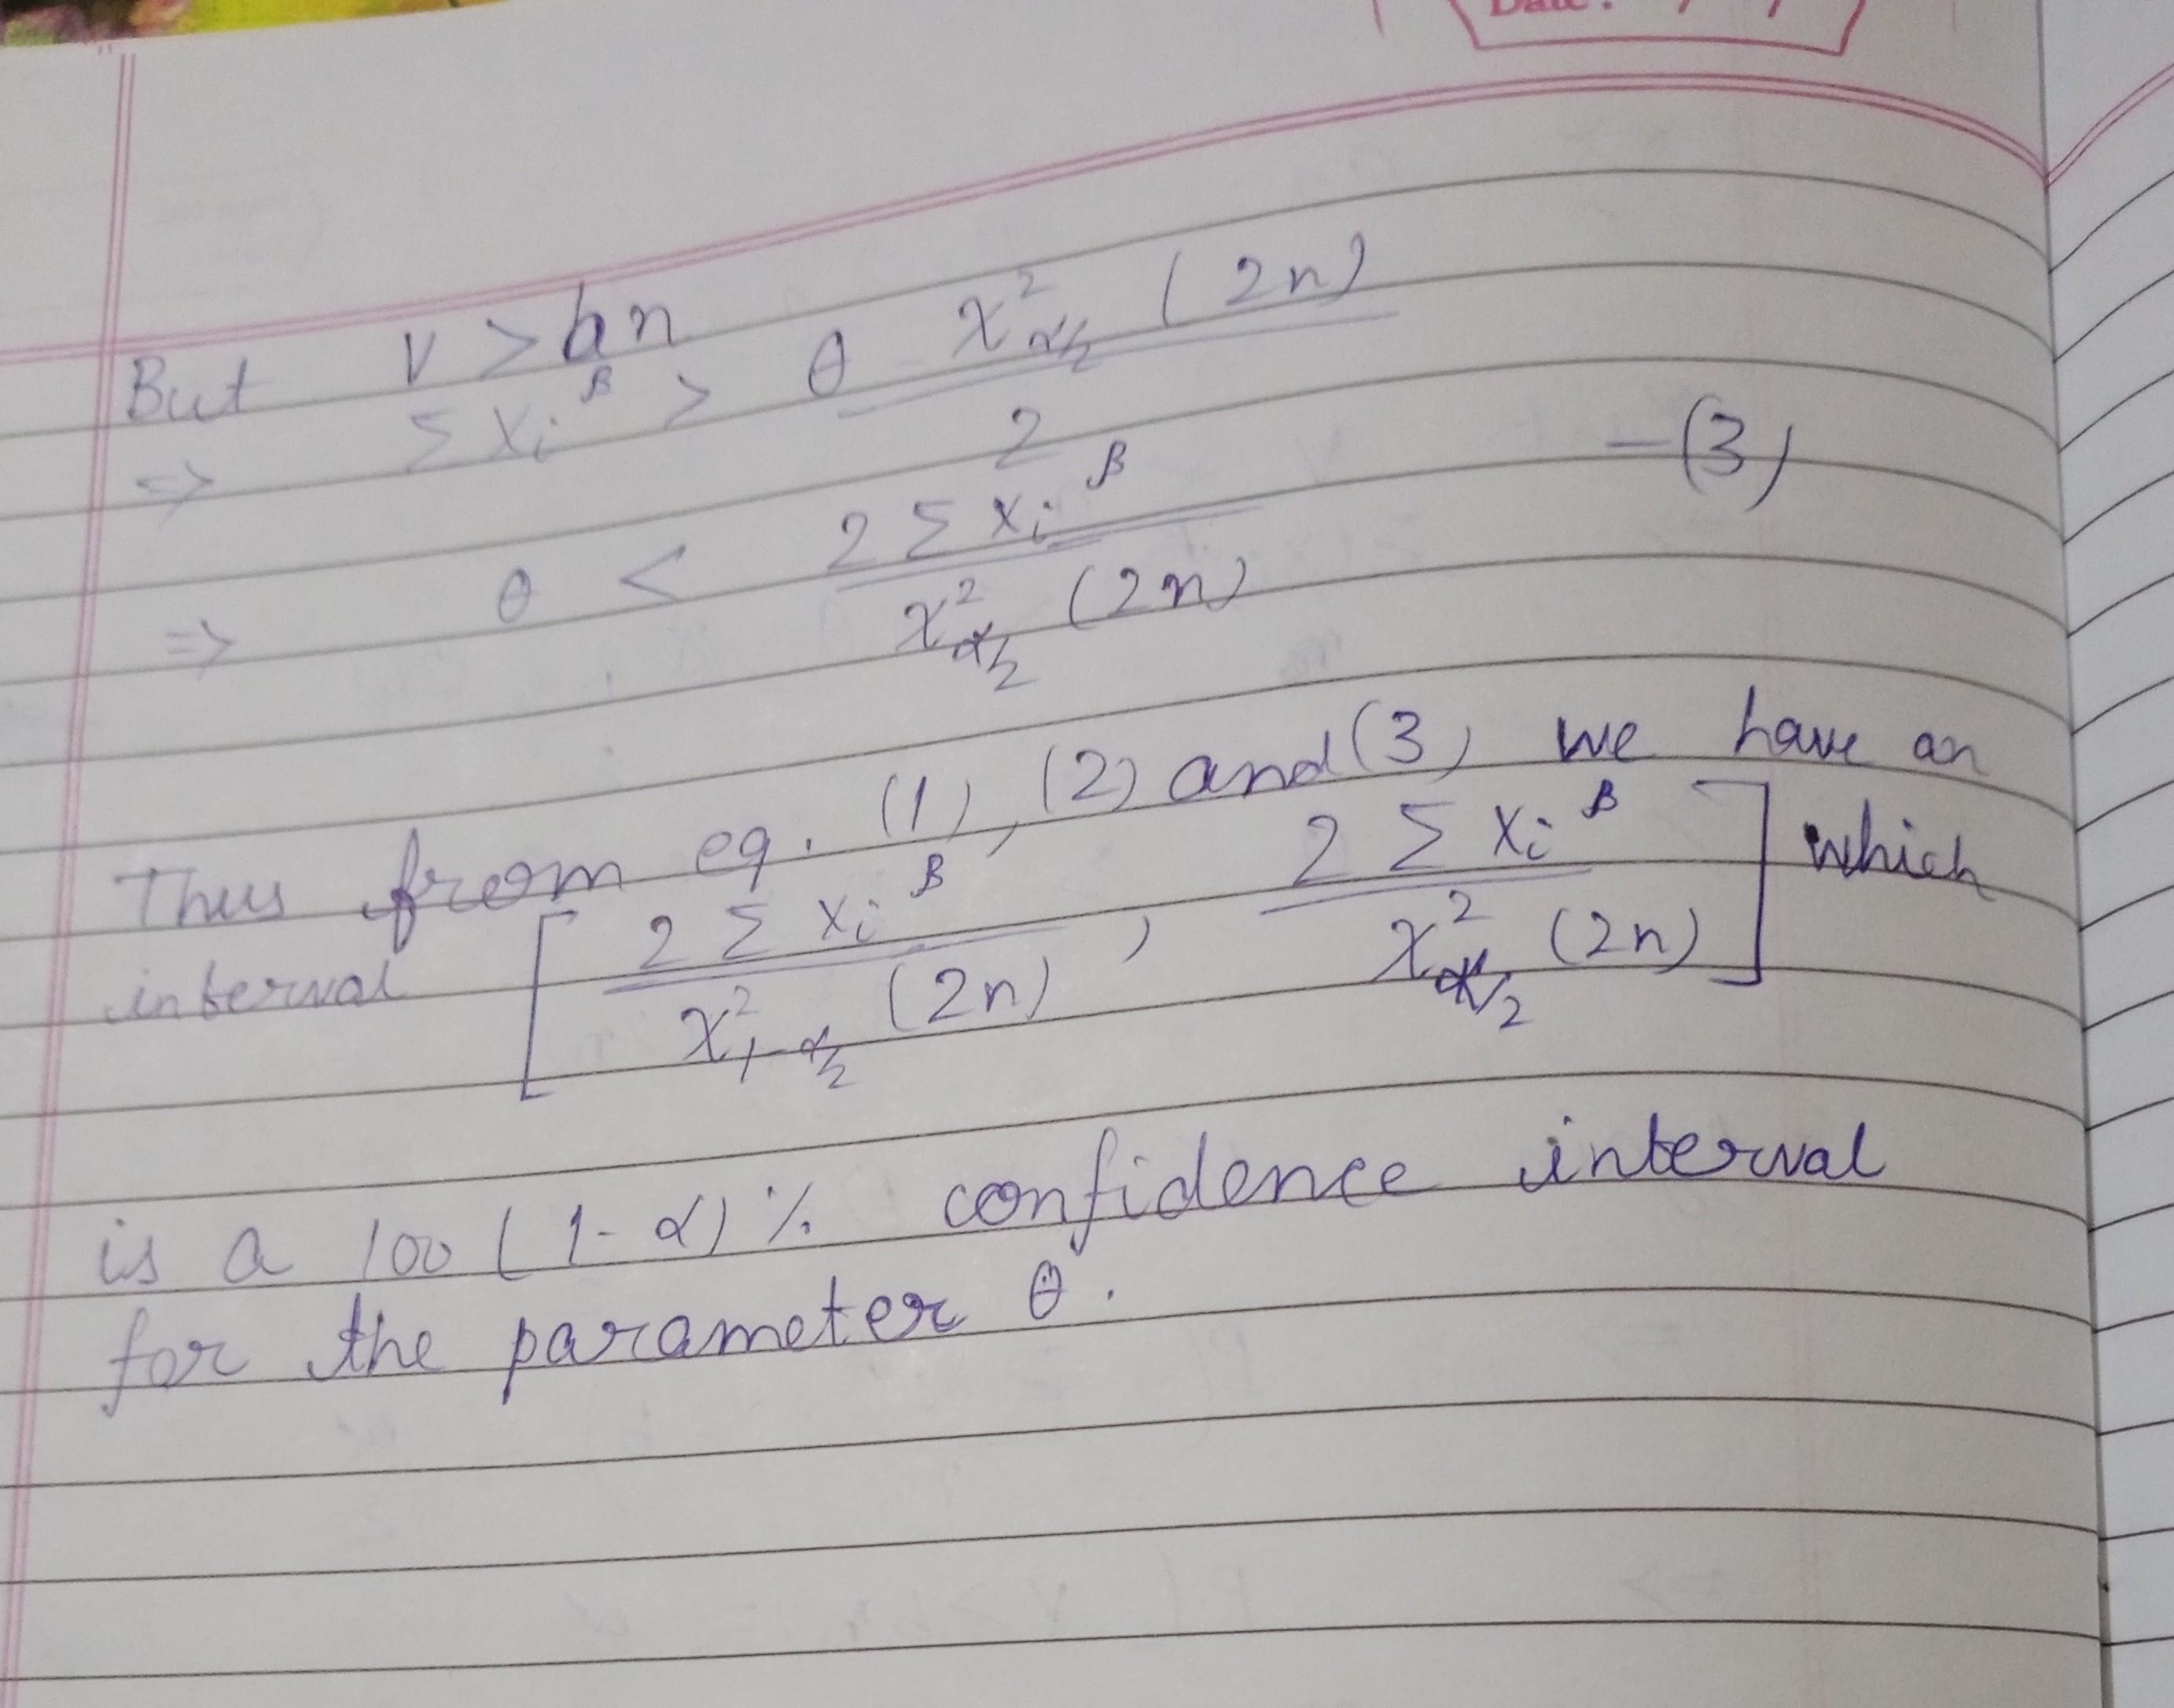 Date : / /
But V > bn
=> Σ Xi^β > θ χ²_α/2 (2n) / 2
=> θ < 2 Σ Xi^β / χ²_α/2 (2n) —(3)
Thus from eq. (1), (2) and (3) we have an
interval [ 2 Σ Xi^β / χ²_1-α/2 (2n) , 2 Σ Xi^β / χ²_α/2 (2n) ] which
is a 100 (1-α) % confidence interval
for the parameter θ.